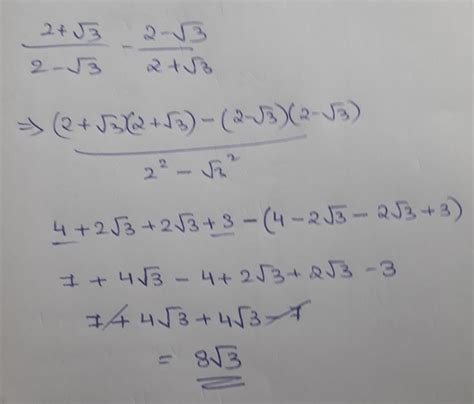 2+√3 / 2-√3 - 2-√3 / 2+√3
⇒ (2+√3)(2+√3) - (2-√3)(2-√3) / 2² - √3²
4 + 2√3 + 2√3 + 3 - (4 - 2√3 - 2√3 + 3)
7 + 4√3 - 4 + 2√3 + 2√3 - 3
7 + 4√3 + 4√3 - 7
= 8√3